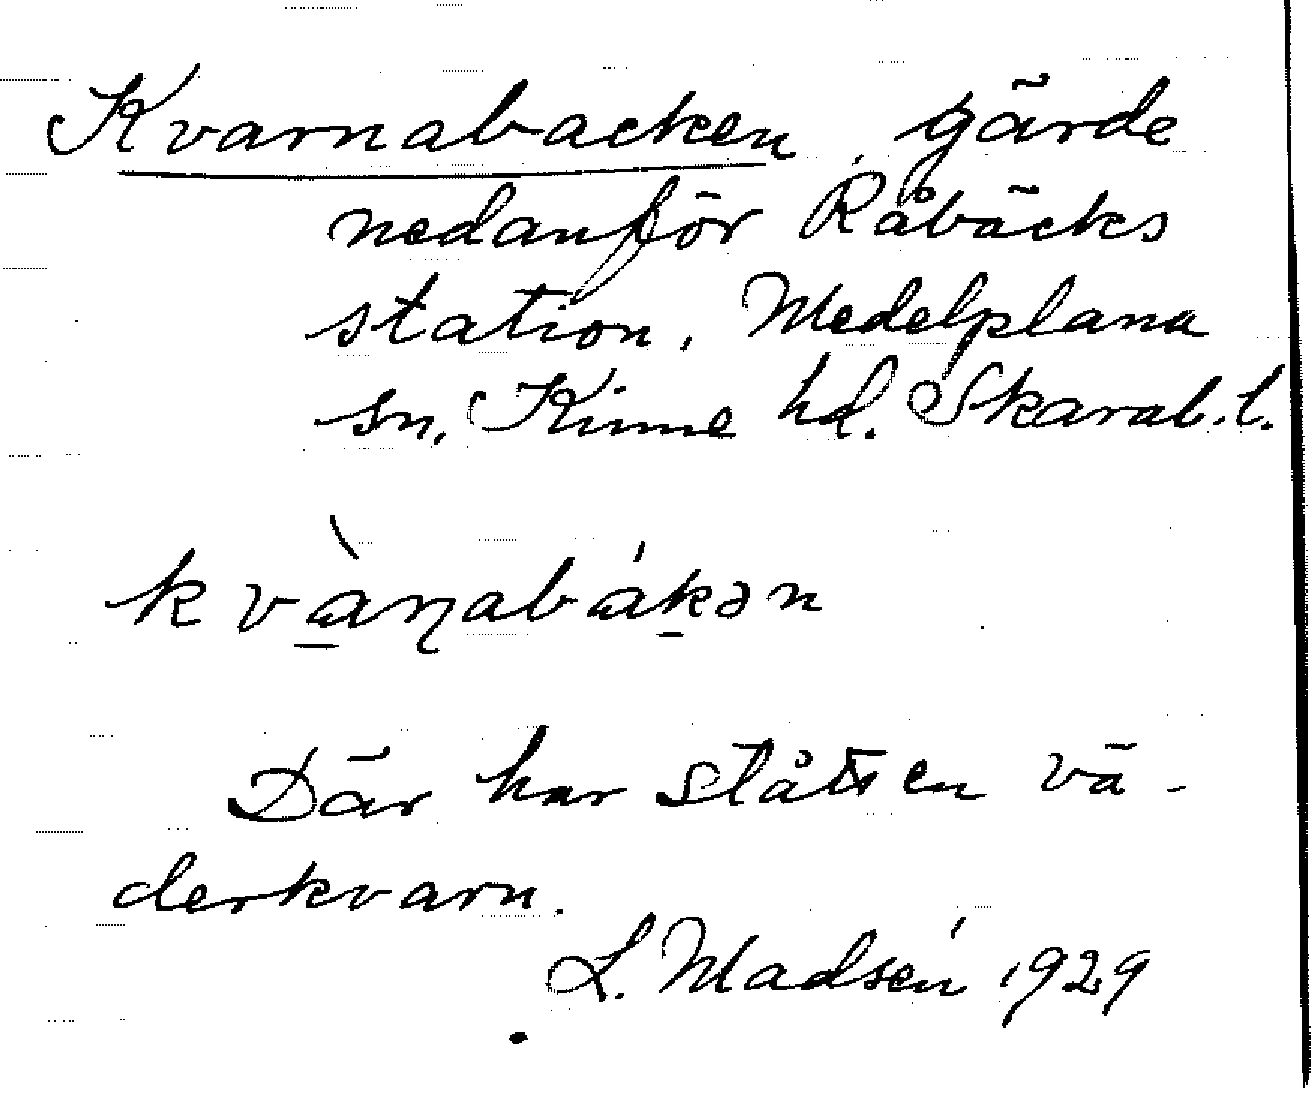 Kvarnabacken, gärde
nedanför Råbäcks
station, Medelplana
sn, Kinne hd. Skarab. l.
kvàɳabákən
Där har stått en vä-
derkvarn.
L. Madsén 1929